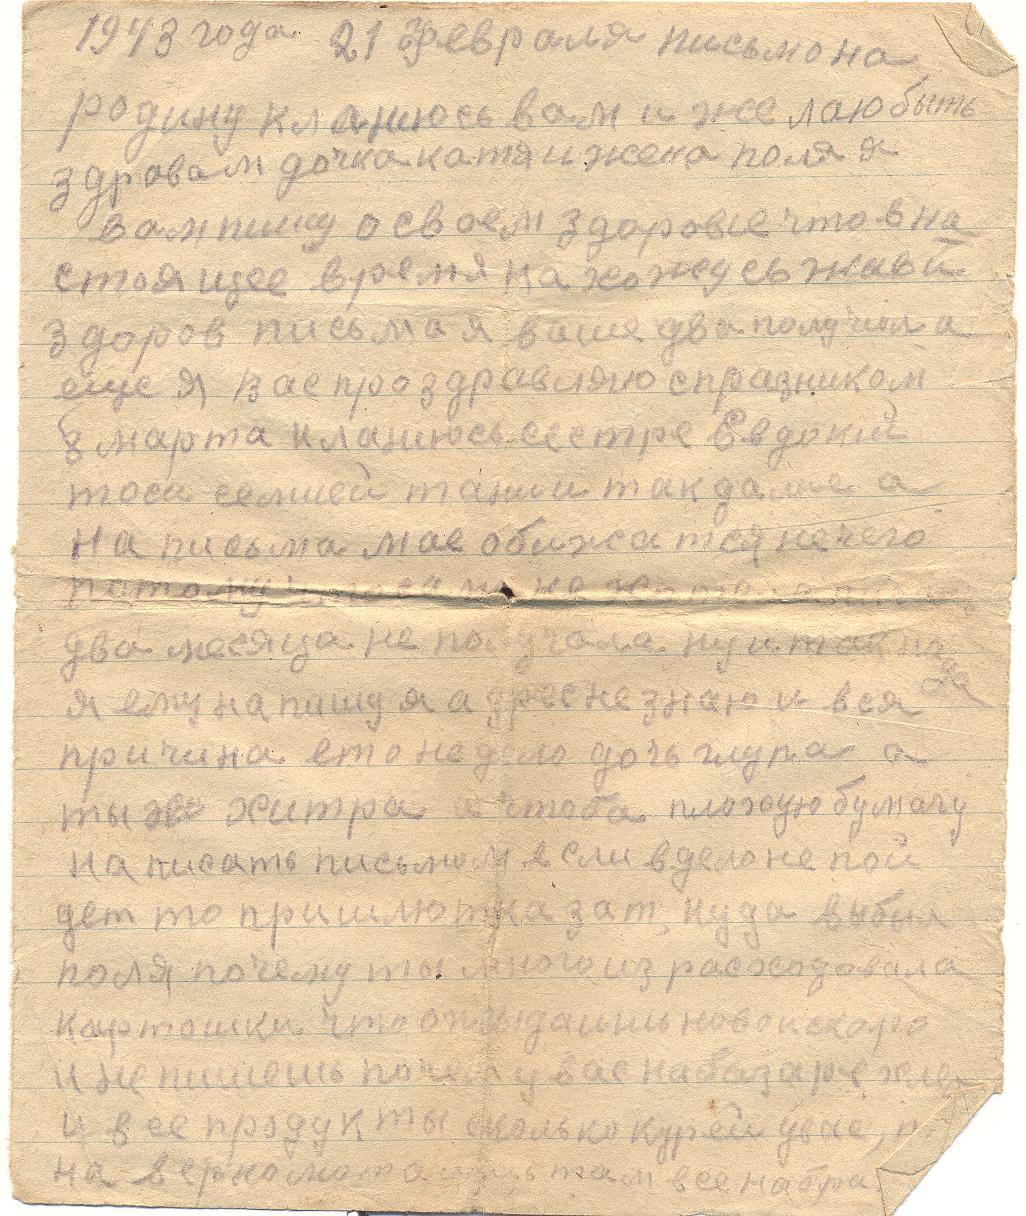 1943 года 21 Февраля письмо на
родину кланюсь вам и желаю быть
здравам дочка катя и жена поля я
вам пишу о своем здоровье что в на
стоящее время нахожусь живй
здоров письма я ваше два получил а
еще я вас проздравляю с празником
8 марта кланюсь сестре Евдокий
тоси семшей тани и так далие а
на письма мае обижатся нечего
потому
два месяца не получала ну и так
я ему напишу я адрес не знаю и вся
причина ето не дело дочь глупа а
ты хитра а чтоба плохую бумагу
написать письмом если в дело не пой
дет то пришлют назат куда выбыл
поля почему ты много израсходавала
картошки что ожыдаишь новои скоро
и не пишешь почему у вас на базаре
и все продукты сколько курей увас,
на верно там все набра